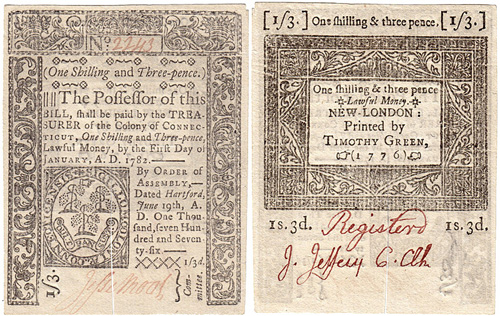 No. 2241
(One Shilling and Three-pence.)
The Possessor of this
BILL, shall be paid by the TREA-
SURER of the Colony of CONNEC-
TICUT, One Shilling and Three-pence,
Lawful Money, by the First Day of
JANUARY, A. D. 1782.
By ORDER of
ASSEMBLY,
Dated Hartford,
June 19th, A.
D. One Thou-
sand, seven Hun-
dred and Seven-
ty-six.
XXXX 1/3d.
1/3.
Com-
mittee.
[1/3.] One shilling & three pence. [1/3.]
One shilling & three pence
Lawful Money.
NEW-LONDON:
Printed by
TIMOTHY GREEN,
(1776)
1s. 3d. 1s. 3d.
Registerd
J. Jeffery C. Clk